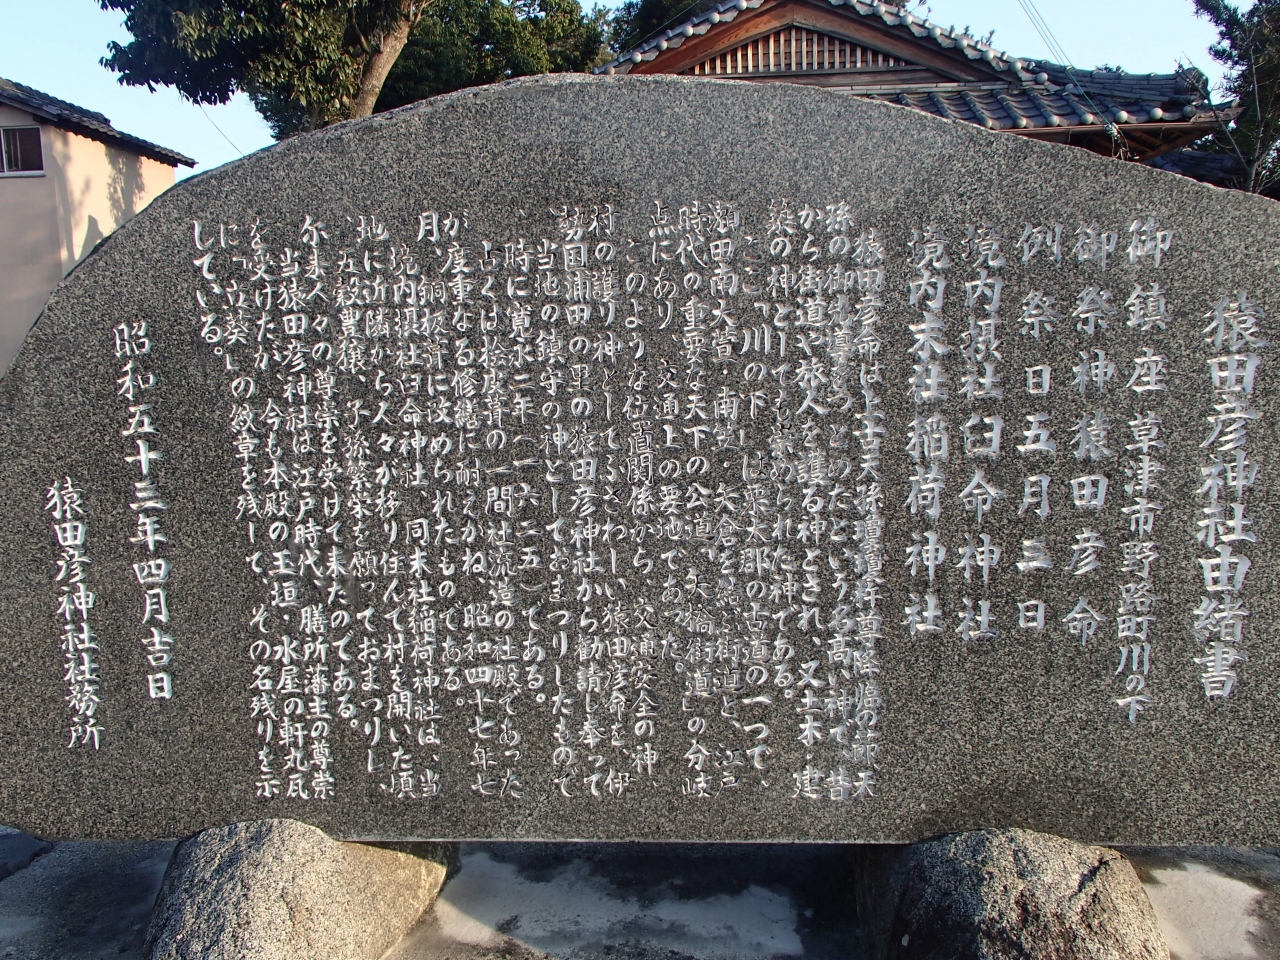 猿田彦神社由緒書
御鎮座草津市野路町川の下
御祭神猿田彦命
例祭日五月三日
境内摂社臼命神社
境内末社稲荷神社
猿田彦命は上古天孫瓊瓊杵尊降臨の節天
孫の御先導をつとめたという名高い神で、昔
から街道や旅人を護る神とされ、又土木・建
築の神としても崇められた神である。
ここ「川の下」は栗太郡の古道の一つで、
瀬田南大萱・南笠・矢倉を結ぶ街道と、江戸
時代の重要な天下の公道「矢橋街道」の分岐
点にあり交通上の要地であった。
このような位置関係から交通安全の神、
村の護り神としてふさわしい猿田彦命を、伊
勢国浦田の里の猿田彦神社から勧請し奉って
当地の鎮守の神としておまつりしたもので
、時に寛永二年(一六二五)である。
古くは桧皮葺の一間社流造の社殿であった
が度重なる修繕に耐えかね、昭和四十七年七
月、銅板葺に改められたものである。
境内摂社臼命神社、同末社稲荷神社は、当
地に近隣から人々が移り住んで村を開いた頃
、五穀豊穣、子孫繁栄を願っておまつりし、
尓来人々の尊崇を受けて来たのである。
当猿田彦神社は江戸時代、膳所藩主の尊崇
を受けたが今も本殿の玉垣・水屋の軒丸瓦
に「立葵」の紋章を残して、その名残りを示
している。
昭和五十三年四月吉日
猿田彦神社社務所